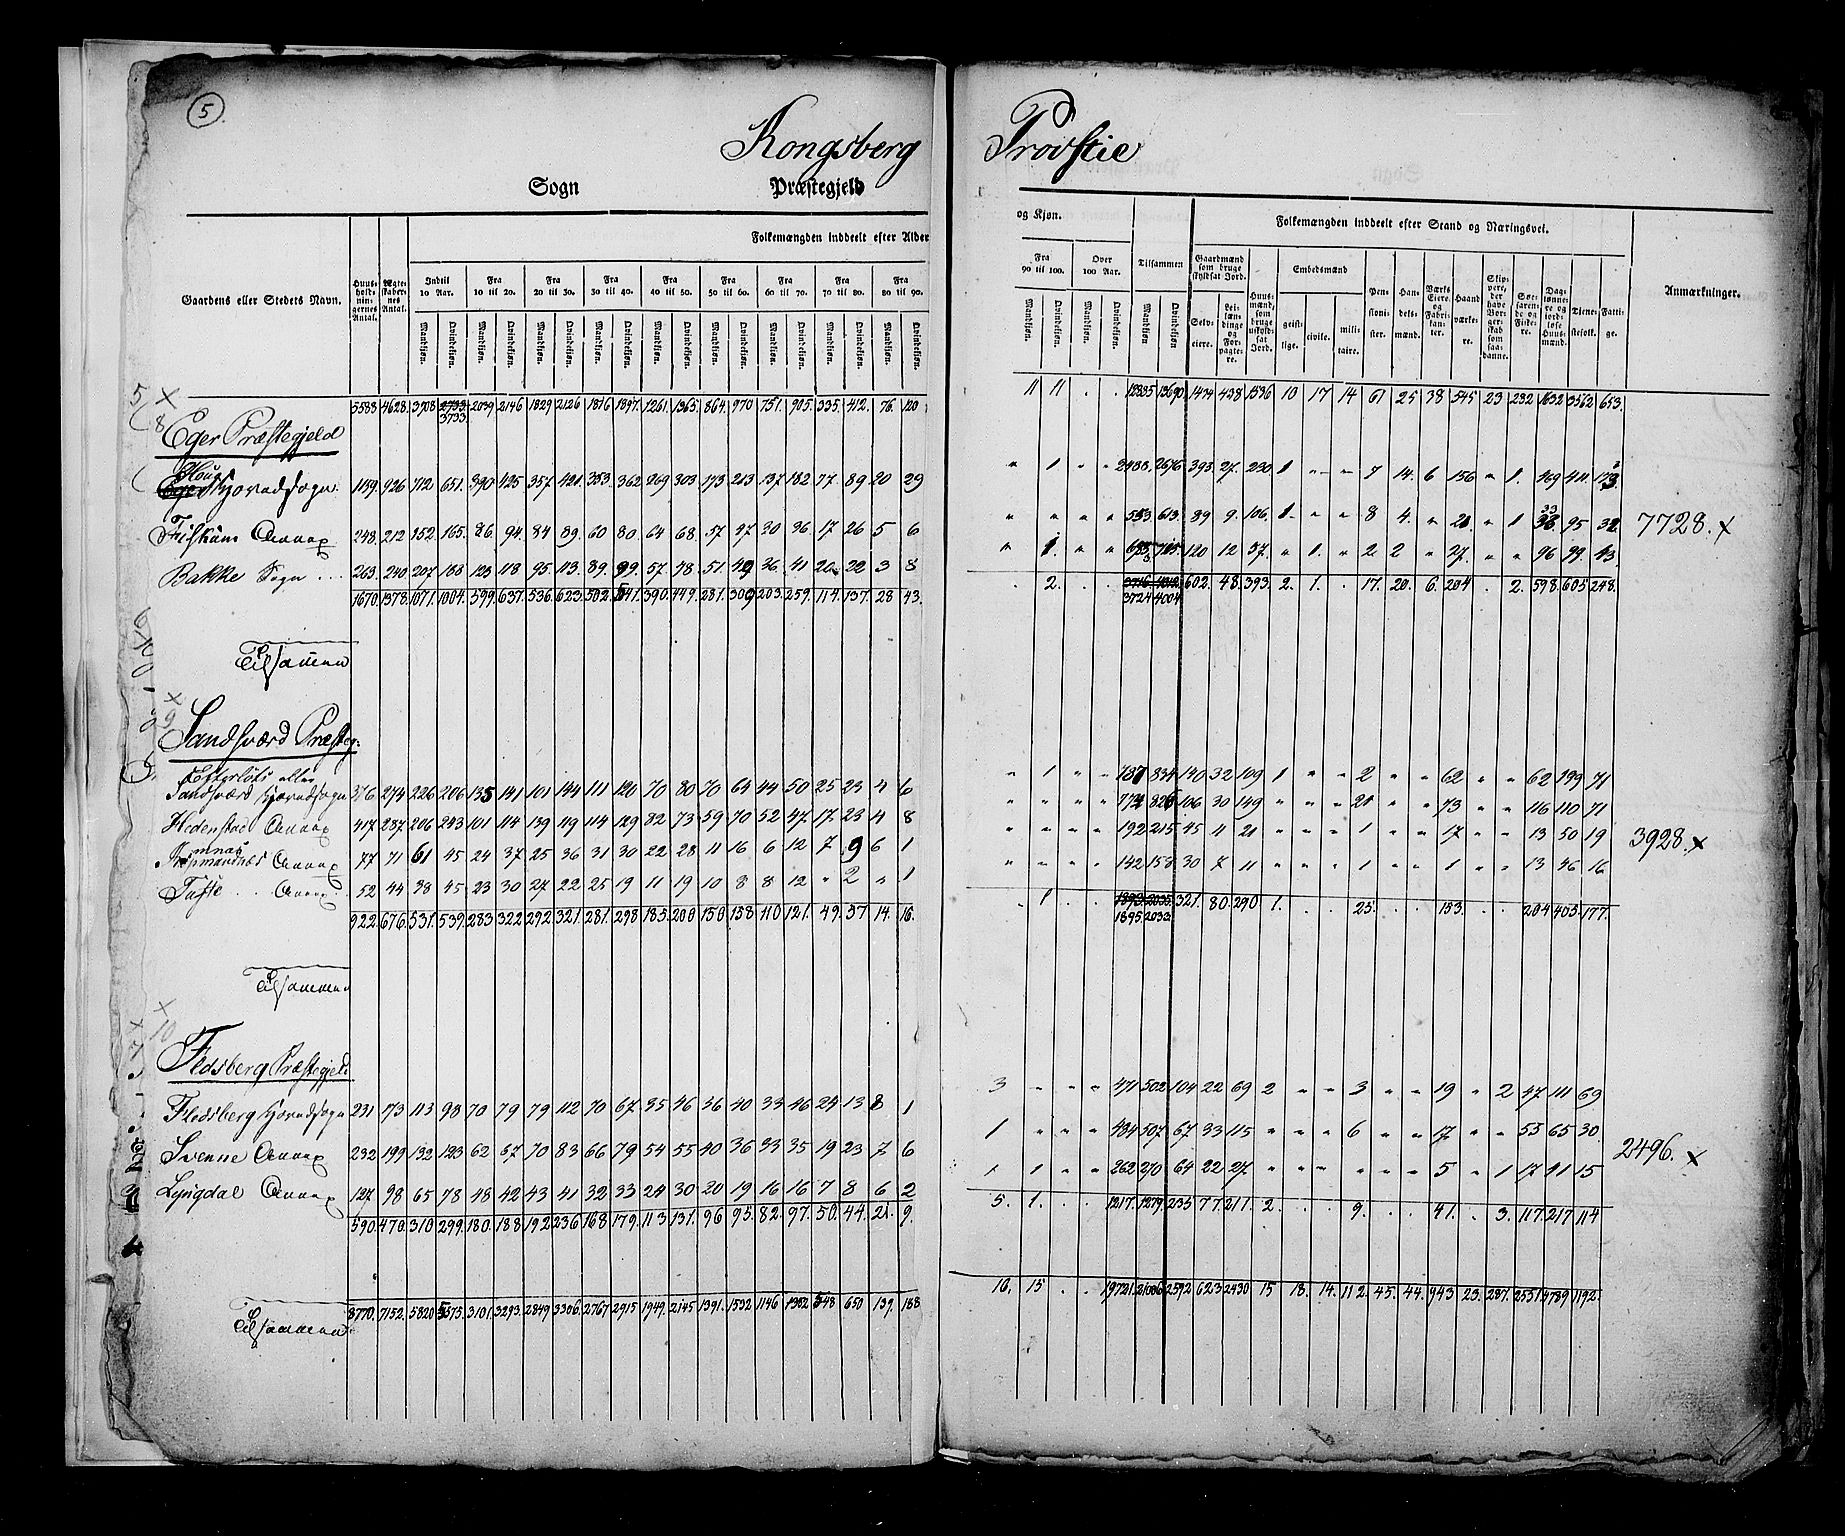 5
Kongsberg Provstie
Sogn Præstegjeld
Gaardens eller Stedets Navn. Huus-holdnin-gernes Antal. Ægte-skabernes Antal. Folkemængden inddeelt efter Alder og Kjøn. Folkemængden inddeelt efter Stand og Næringsvei. Anmærkninger.
Indtil 10 Aar. Fra 10 til 20. Fra 20 til 30. Fra 30 til 40. Fra 40 til 50. Fra 50 til 60. Fra 60 til 70. Fra 70 til 80. Fra 80 til 90. Fra 90 til 100. Over 100 Aar. Tilsammen Gaardmænd som bruge skyldsat Jord. Embedsmænd
Mandkjøn. Qvindekjøn. Selveiere. geistlige. civile. militaire. Pensionister. Handelsmænd. Værks Eiere og Fabrikanter. Haandværkere. Tjenestefolk. Fattige.
5583 4628. 3908 2733 2039 2146 1829 2126 1816 1897. 1261. 1365. 864. 970 751. 905. 335. 412. 76. 120 11 11 . . 12835 13690 1474 438 1536 10 17 14 61 25 38 545 23 232 1632 3562 653.
3733.
Eger Præstegjeld
Houg
Hovedsogn. 1159. 926 712 651. 390 425 357 421 353 362 269 303 173 213 137 182 77 89 20 29 " 1 " " 2488 2676 393 27. 230 1 " " " 7 14. 6 156 " 1. 469 411 173
Fiskum Annex 248. 212 152. 165. 86. 94. 84 89. 60 80. 64 68. 57 47 30 36 17 26 5 6 " " " " 553 613. 89 9. 106. 1. " " 8 4. " 21 " 1 33 95 32 7728.x
Bakke Sogn ... 263. 240. 207 188 123 118 95. 113. 89. 99. 57 78. 51. 49 36. 41 20 22 3 8 " 1. " " 683 715 120 12 57. " 1. " 2 2 " 27. " " 96 99 43
1670. 1378. 1071. 1004. 599. 637. 536. 623. 502. 541. 390. 449. 281. 309 203. 259. 114. 137. 28 43. . 2. 3716 4012 602. 48. 393. 2. 1. . 17. 20. 6. 204 . 2. 598. 605 248.
3724 4004
Tilsammen
Sandsværd Præsteg:
Efterløts eller
Sandsværd Hovedsogn 376. 274 226 206 135 141 101 144 111 120 70 80 70 64 44 50 25 23 4 6 " 1 " " 787 834 140 32 109 1 " " 2 " " 62 " " 62 139 71
Hedenstad Annex 417 287 206 243 101 114 139 119 114 129 82 73 59 70 52 47. 17. 23 4 8 " " " " 106 30 149 " " " 21 " " 73 " " 116 110 71
Annex 77 71 61 45 24 37. 25 36 31 30 22 28 11 16 6 12 7 9 6 1 " " " " 192 215 45 11 21 " " " 1 " " 17. " " 13 50 19 3928.x
Tufte .. Annex 52 44 38 45 23 30 27 22 25 19 11 19 10 8 8 12 " 2 " 1 " " " " 142 158 30 7 11 " " " 1 " " 1 " " 13 46 16
922. 676. 531. 539. 283 322 292 321. 281. 298 185. 200 150 158 110 121. 49. 57 14. 16. . 1 . . 1893 2035 321. 80. 290 1. . . 25. . . 153. . . 204 405. 177.
1895. 2033
Tilsammen
Fledsberg Præstegjeld
Fledsberg Hovedsogn 231 173 113 98 70 79 79 112 70 67. 35 46 36 40 33 46 24 13 8 1 3 " " " 471 502 104 22 69 2 " " 3 " " 19 " 2 47 111 69
Svenne Annex 232 199 132 123 62 67 70 83 66 79 54 55 40 36 33 35 19 23 7 6 1 " " " 484 507 67 33 115 " " " 6 " " 17 " " 53 65 30. 2496. x
Lyngdal Annex 127. 98 65 78 48 42 43 41 32 33 24 30 20 19 16 16 7 8 6 2 1 1 " " 262 270 64 22 27. " " " " " " 5 " 1 17 41 15
590. 470. 310 299. 180. 188 192 236. 168 179. 113 131. 96 95. 82. 97. 50. 44. 21. 9. 5. 1. . . 1217. 1279. 235 77. 211. 2. . . 9. . . 41. . 3. 117. 217 114
Tilsammen 8770. 7152. 5820 5575. 3101. 3293. 2849 3306. 2767 2915 1949. 2145 1391. 1532 1146 1382 548 650 139. 188 16. 15 . . 19721. 21006 2592 623 2430 15 18. 14. 112. 45. 44. 943 23. 287. 2551 4789 1192.